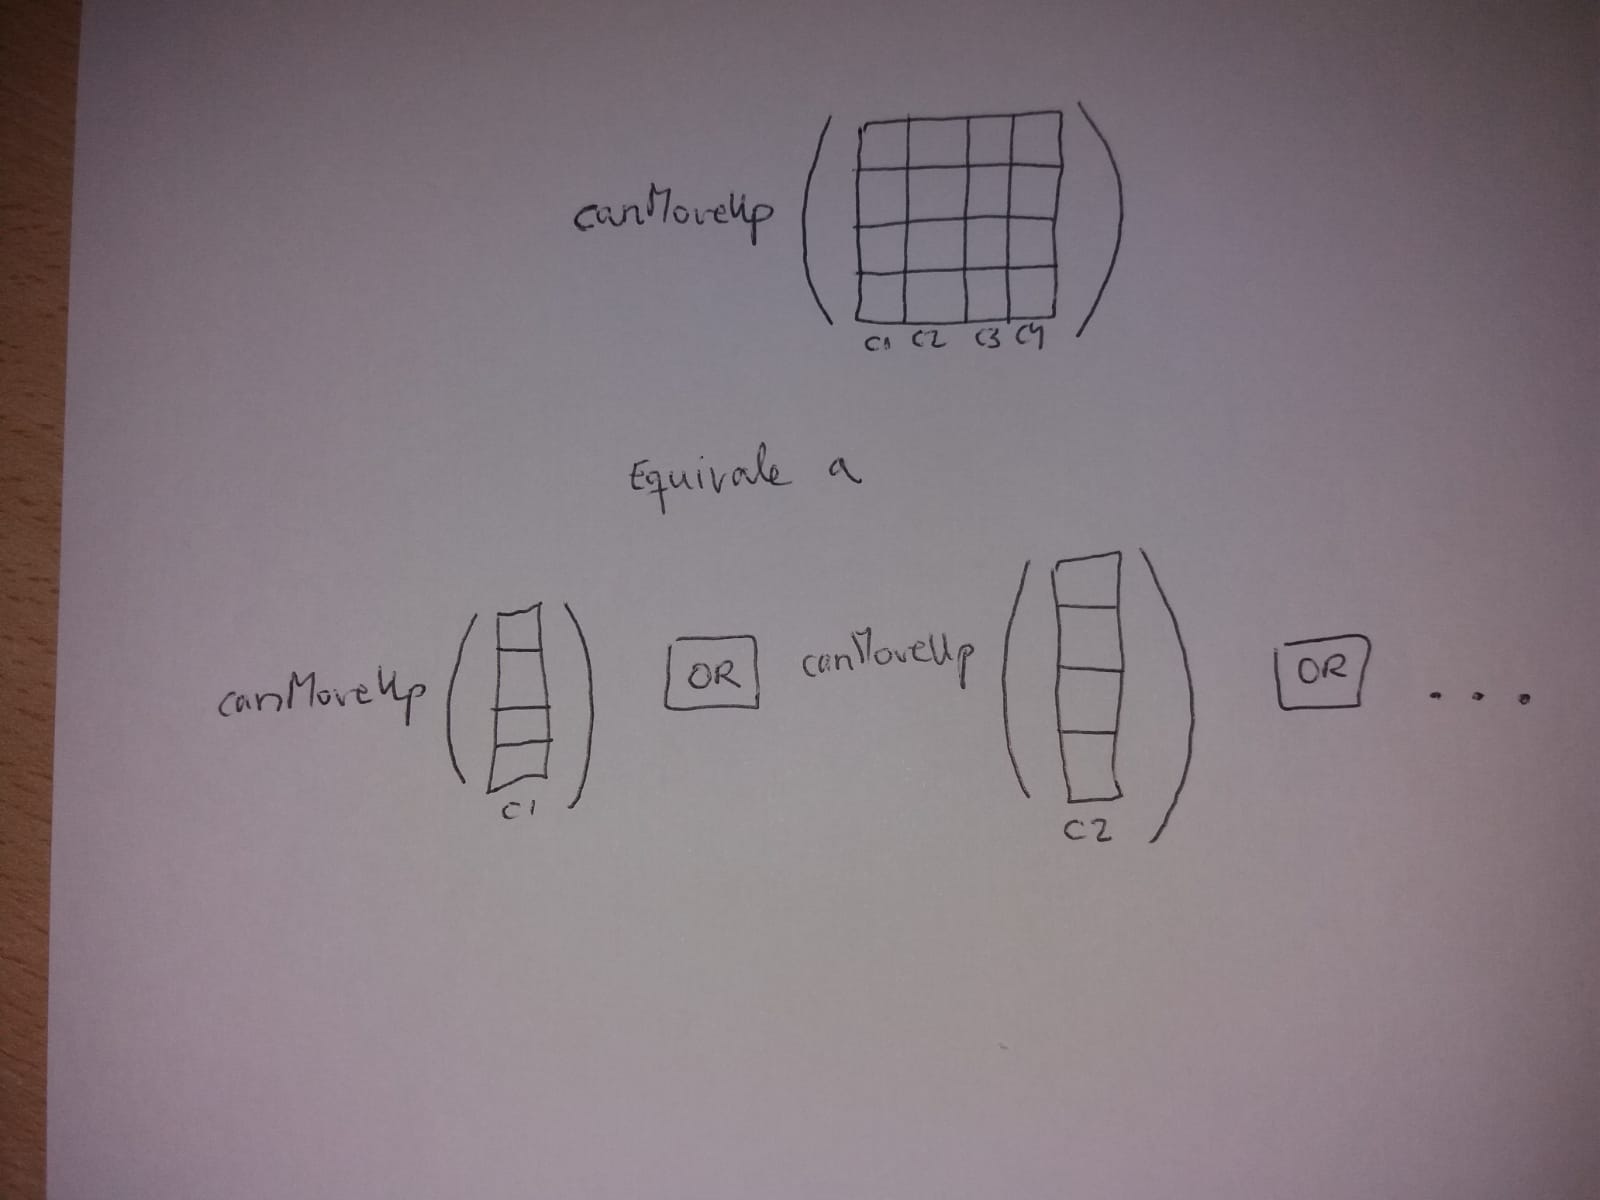 canMoveUp
C1 C2 C3 C4
Equivale a
canMoveUp OR canMoveUp OR ...
C1 C2